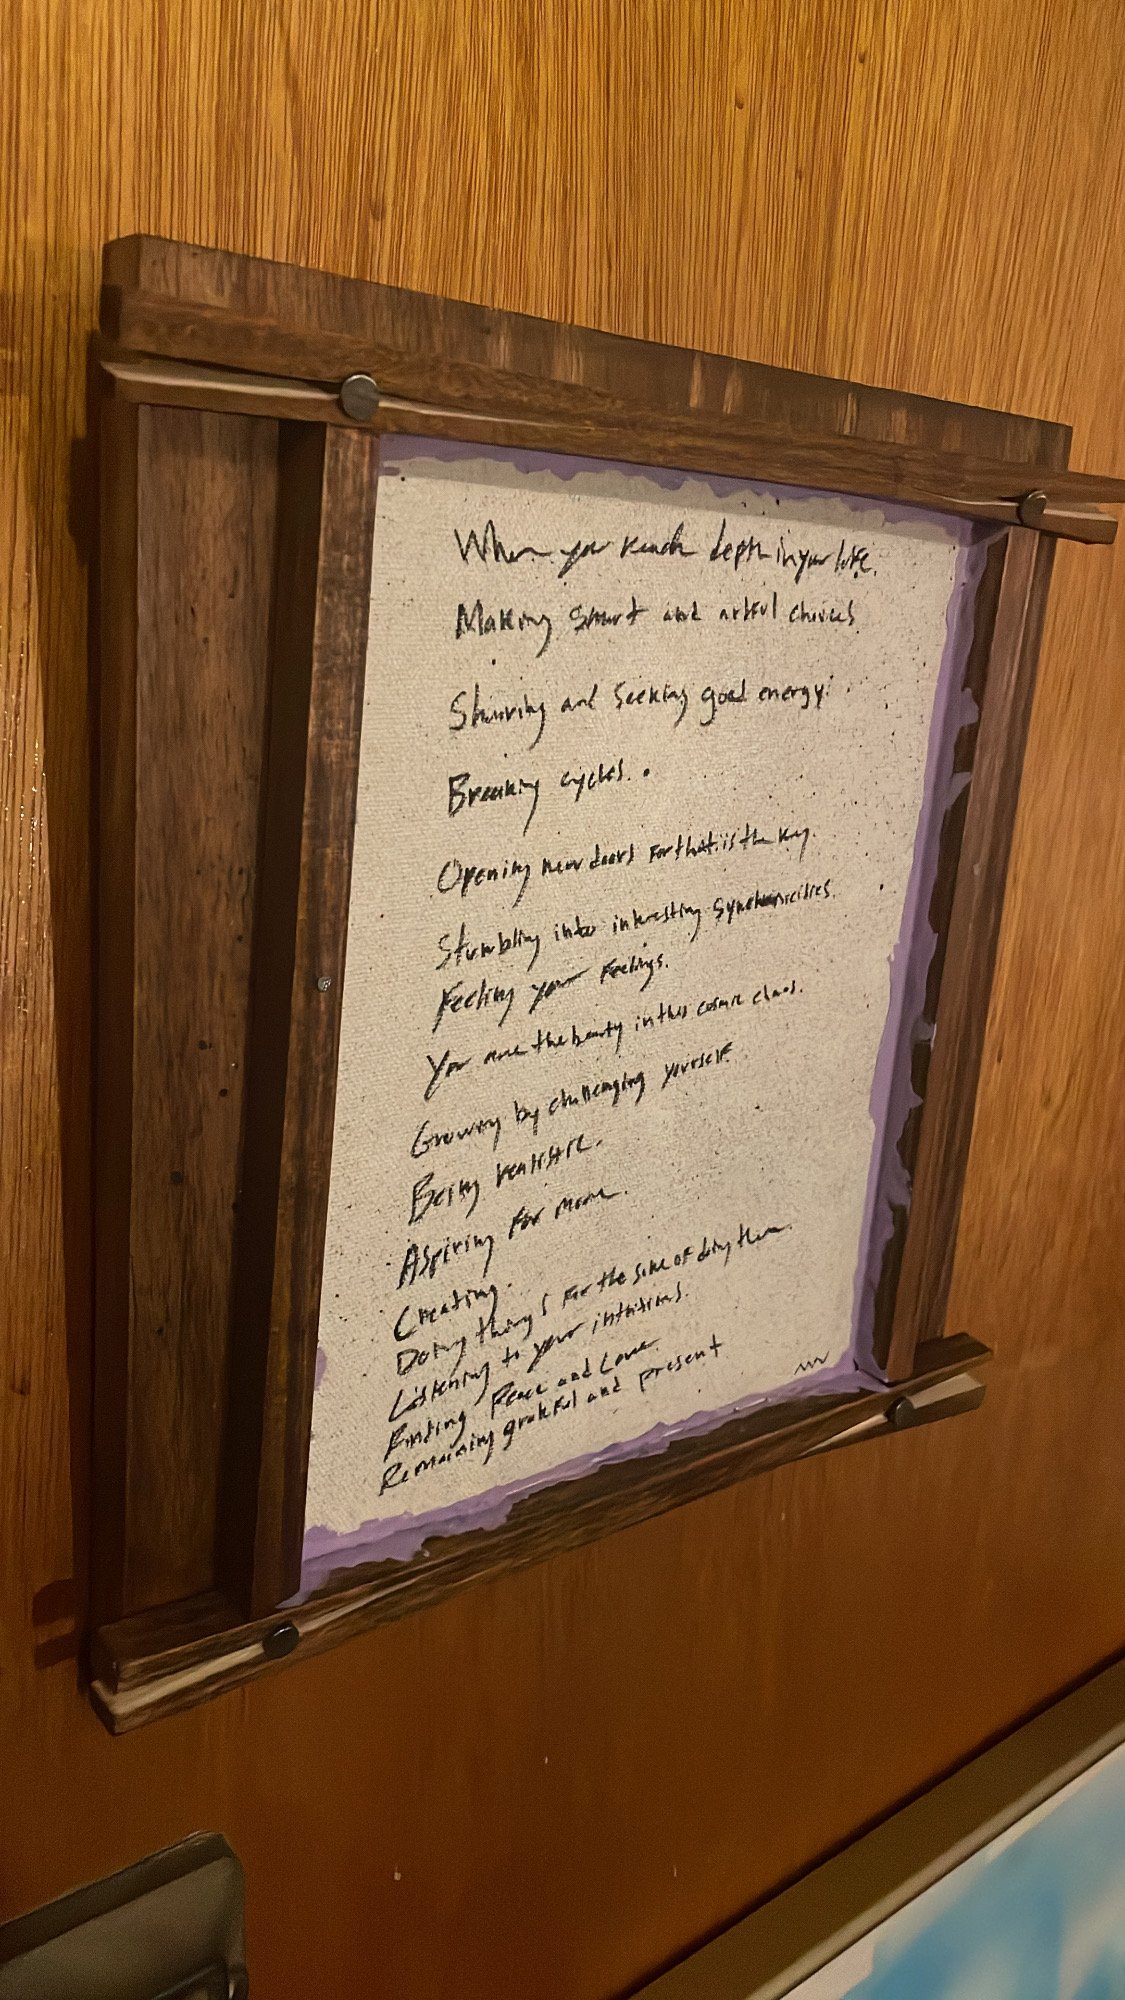 When you reach depth in your life.
Making smart and artful choices
Sharing and Seeking good energy.
Breaking cycles.
Opening new doors for that is the key.
Stumbling into interesting Synchronicities.
Feeling your feelings.
You are the beauty in this cosmic chaos.
Growing by challenging yourself.
Being realistic.
Aspiring for more.
Creating.
Doing things for the sake of doing them.
Listening to your intuitions.
Finding Peace and Love.
Remaining grateful and present